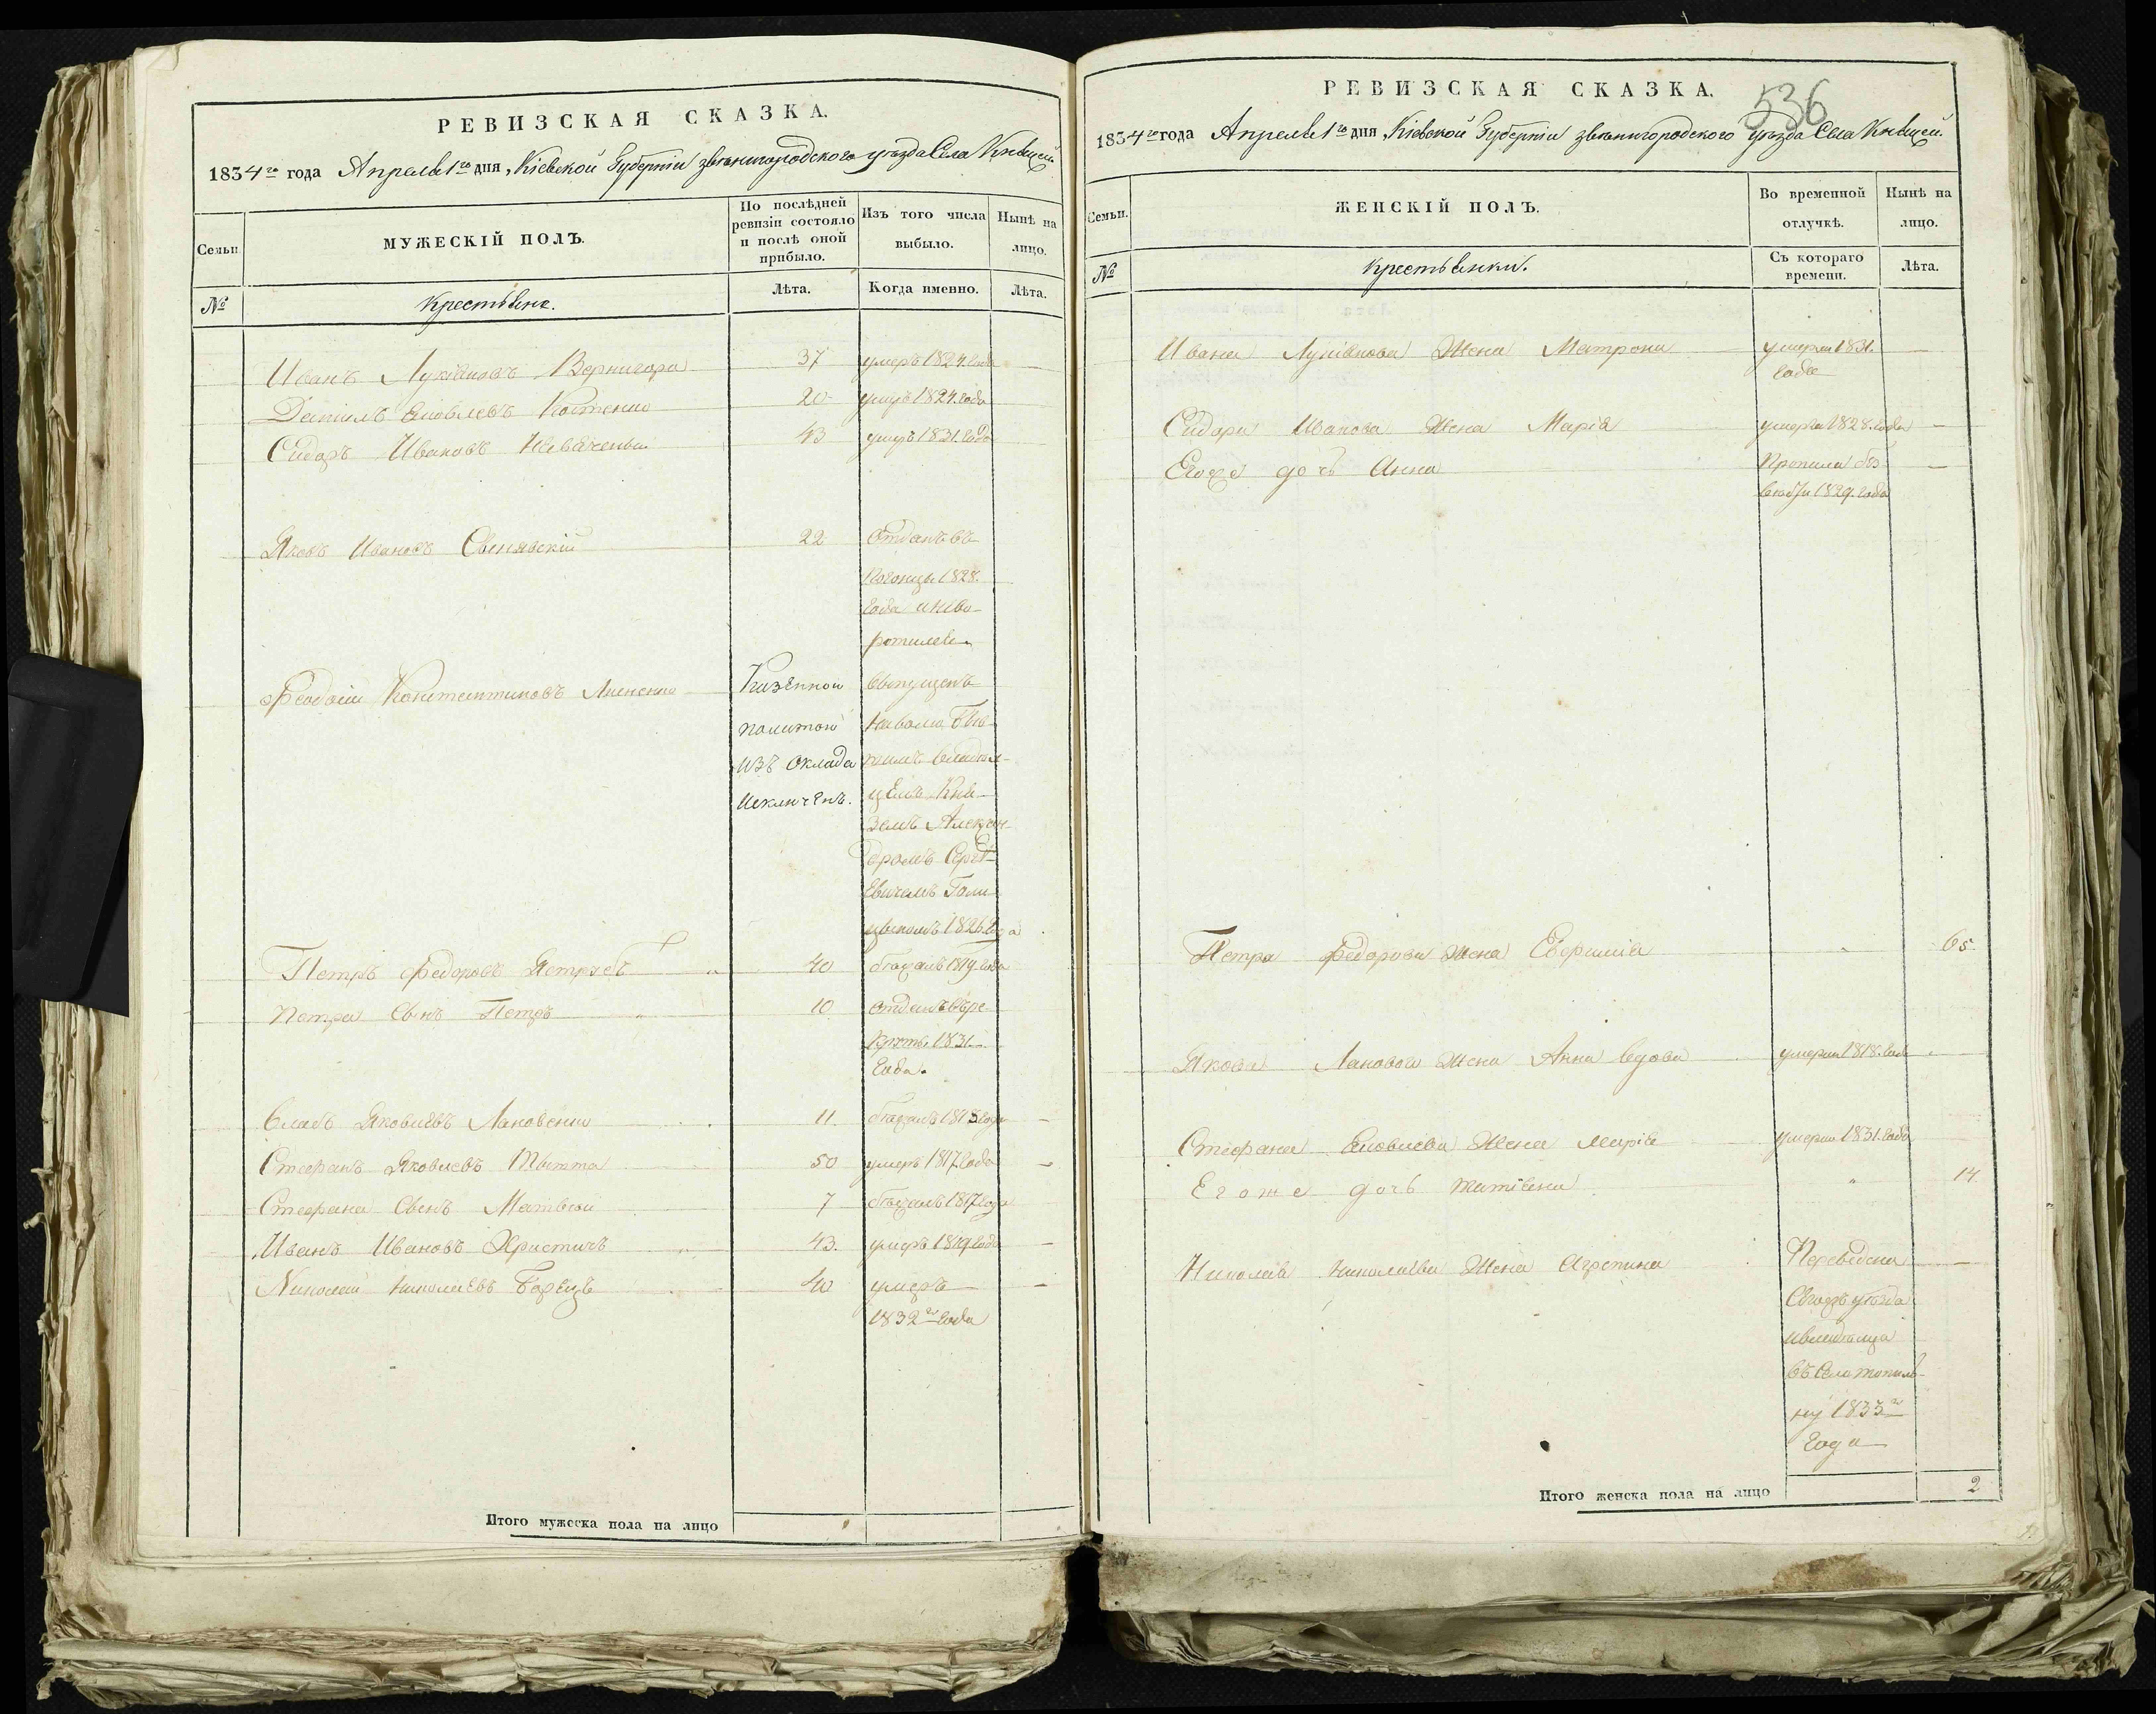 РЕВИЗСКАЯ СКАЗКА.
1834го года Апреля 1го дня, Кіевской Губерніи звѣнигородского уѣзда Села
Семьи.
МУЖЕСКІЙ ПОЛЪ.
По послѣдней ревизіи состояло и послѣ оной прибыло.
Изъ того числа выбыло.
Нынѣ на лицо.
№
Крестьяне.
Лѣта.
Когда именно.
Лѣта.
Иванъ Лукіяновъ Вернигора 37 умеръ 1824. года
Яковлевъ Костенко 20 умеръ 1824. года
Сидоръ Ивановъ 43 умеръ 1831. года
Яковъ Ивановъ 22 отданъ въ
Погонцы 1828.
года и нево-
ротился
Феодосій Константиновъ Казенной выпущенъ
палатой на волю бы-
изъ оклада
исключенъ.
земъ Алексан-
дромъ Серге-
евичемъ Голи-
цыномъ 1826. года
Петръ Федоровъ 40 бѣжалъ 1819. года
Петра Сынъ Петръ 10 отданъ въ ре-
круты 1831.
года.
Яковлевъ Лановенко 11. бѣжалъ года
Стефанъ Яковлевъ 50 умеръ 1817. года
Стефана Сынъ Матвѣй 7 бѣжалъ 1817. года
Иванъ Ивановъ Христичъ 43. умеръ 1819. года
Николай Николаевъ 40 умеръ
1832го года
Итого мужеска пола на лицо
536
РЕВИЗСКАЯ СКАЗКА.
1834го года Апреля 1го дня, Кіевской Губерніи звѣнигородского уѣзда Села
Семьи.
ЖЕНСКІЙ ПОЛЪ.
Во временной отлучкѣ.
Нынѣ на лицо.
№
Крестьянки.
Съ котораго времени.
Лѣта.
Ивана Лукіянова Жена Матрона умерла 1831.
года
Сидора Иванова Жена Марія умерла 1828. года
Егоже дочь Анна Пропала без
1829. года
Петра Федорова жена Евфимія 65.
Якова Ланового Жена Анна вдова умерла 1818. года
Стефана Яковлева Жена Марія умерла 1831. года
Егоже дочь Татіяна 14.
Николая Николаева Жена Агрепина Переведена
уѣзда
въ Село
ну 1833го
года
Итого женска пола на лицо 2